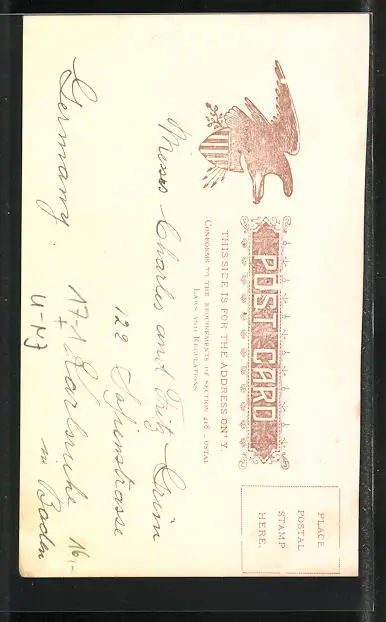 POST CARD
THIS SIDE IS FOR THE ADDRESS ONLY.
CONFORMS TO THE REQUIREMENTS OF SECTION 418 POSTAL
LAWS AND REGULATIONS
PLACE
POSTAL
STAMP
HERE.
Messrs Charles and Fritz Grim
122 Sofienstrasse
171 Karlsruhe
in Baden
Germany.
U-NJ
16,-